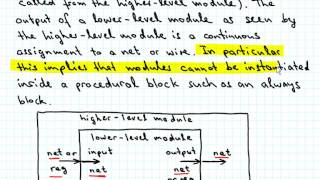 called from the higher-level module). The
output of a lower-level module as seen by
the higher-level module is a continuous
assignment to a net or wire. In particular
this implies that modules cannot be instantiated
inside a procedural block such as an always
block.
higher-level module
lower-level module
net or
reg
input
net
output
net
net
or reg